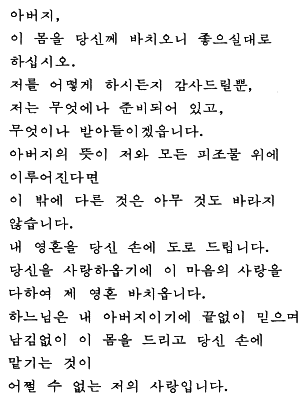 아버지,
이 몸을 당신께 바치오니 좋으실대로
하십시오.
저를 어떻게 하시든지 감사드릴뿐,
저는 무엇에나 준비되어 있고,
무엇이나 받아들이겠읍니다.
아버지의 뜻이 저와 모든 피조물 위에
이루어진다면
이 밖에 다른 것은 아무 것도 바라지
않습니다.
내 영혼을 당신 손에 도로 드립니다.
당신을 사랑하옵기에 이 마음의 사랑을
다하여 제 영혼 바치옵니다.
하느님은 내 아버지이기에 끝없이 믿으며
남김없이 이 몸을 드리고 당신 손에
맡기는 것이
어쩔 수 없는 저의 사랑입니다.